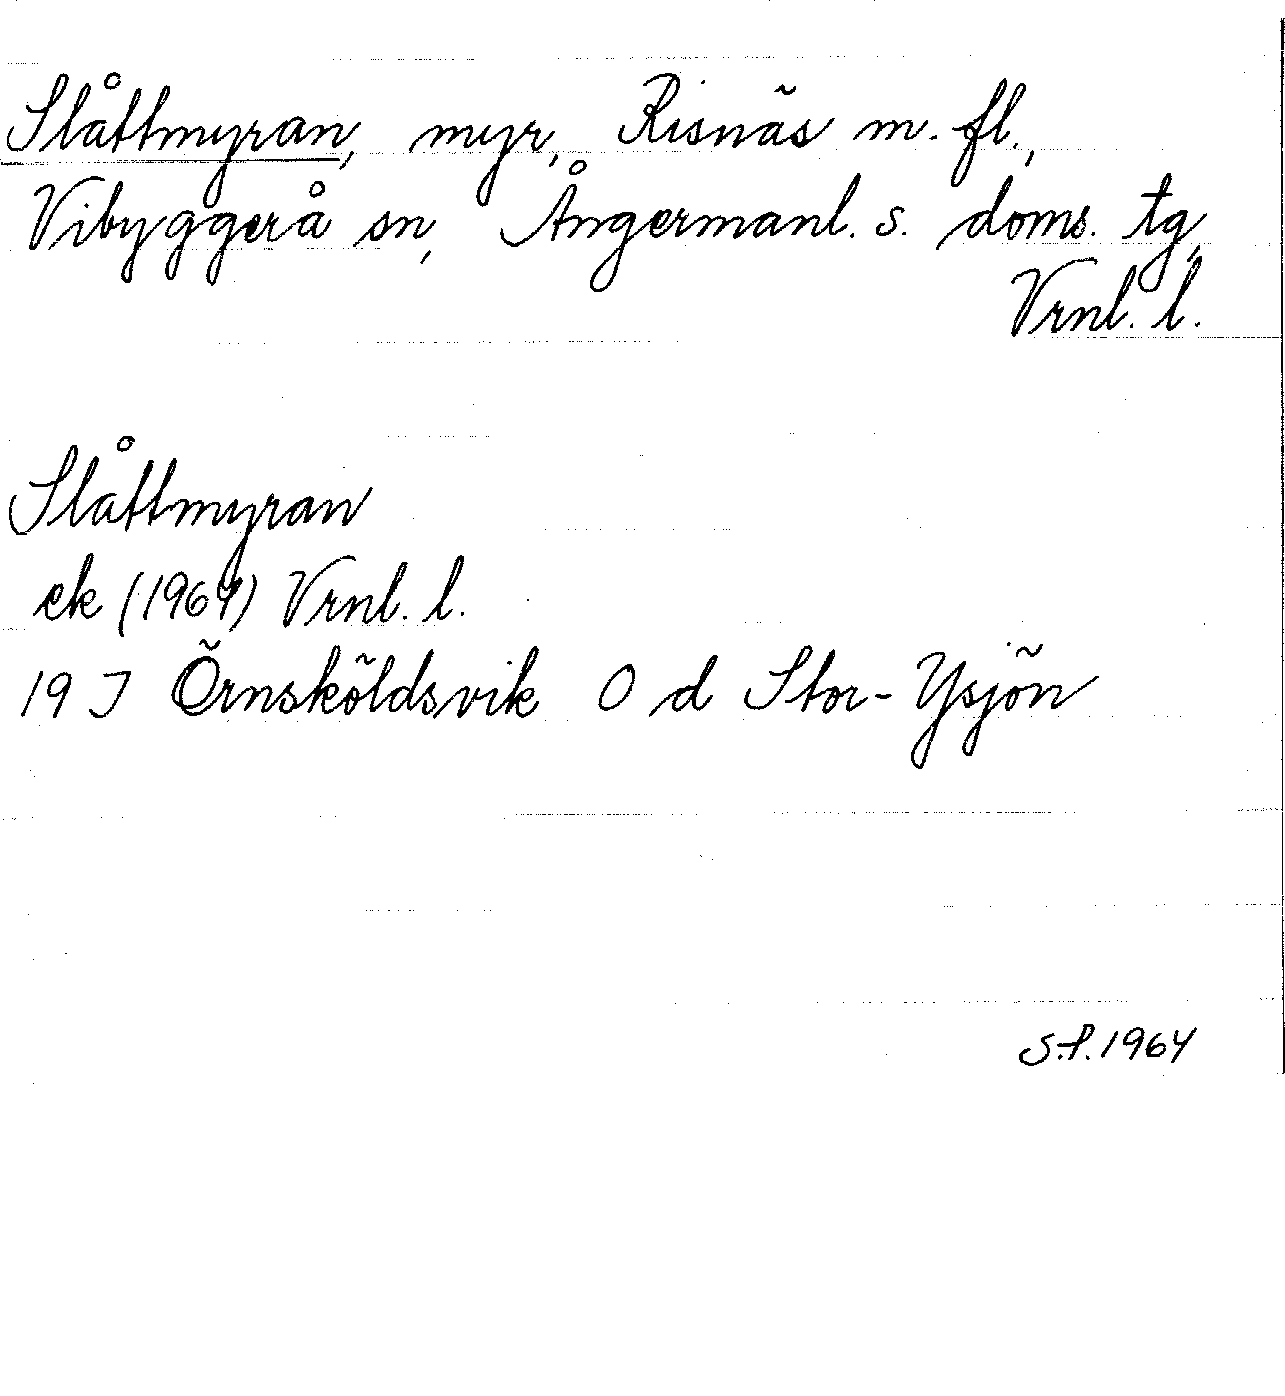 Slåttmyran, myr, Risnäs m. fl.,
Vibyggerå sn, Ångermanl. s. doms. tg,
Vrnl. l.
Slåttmyran
ek (1964) Vrnl. l.
19 J Örnsköldsvik O d Stor-Ysjön
S.P. 1964